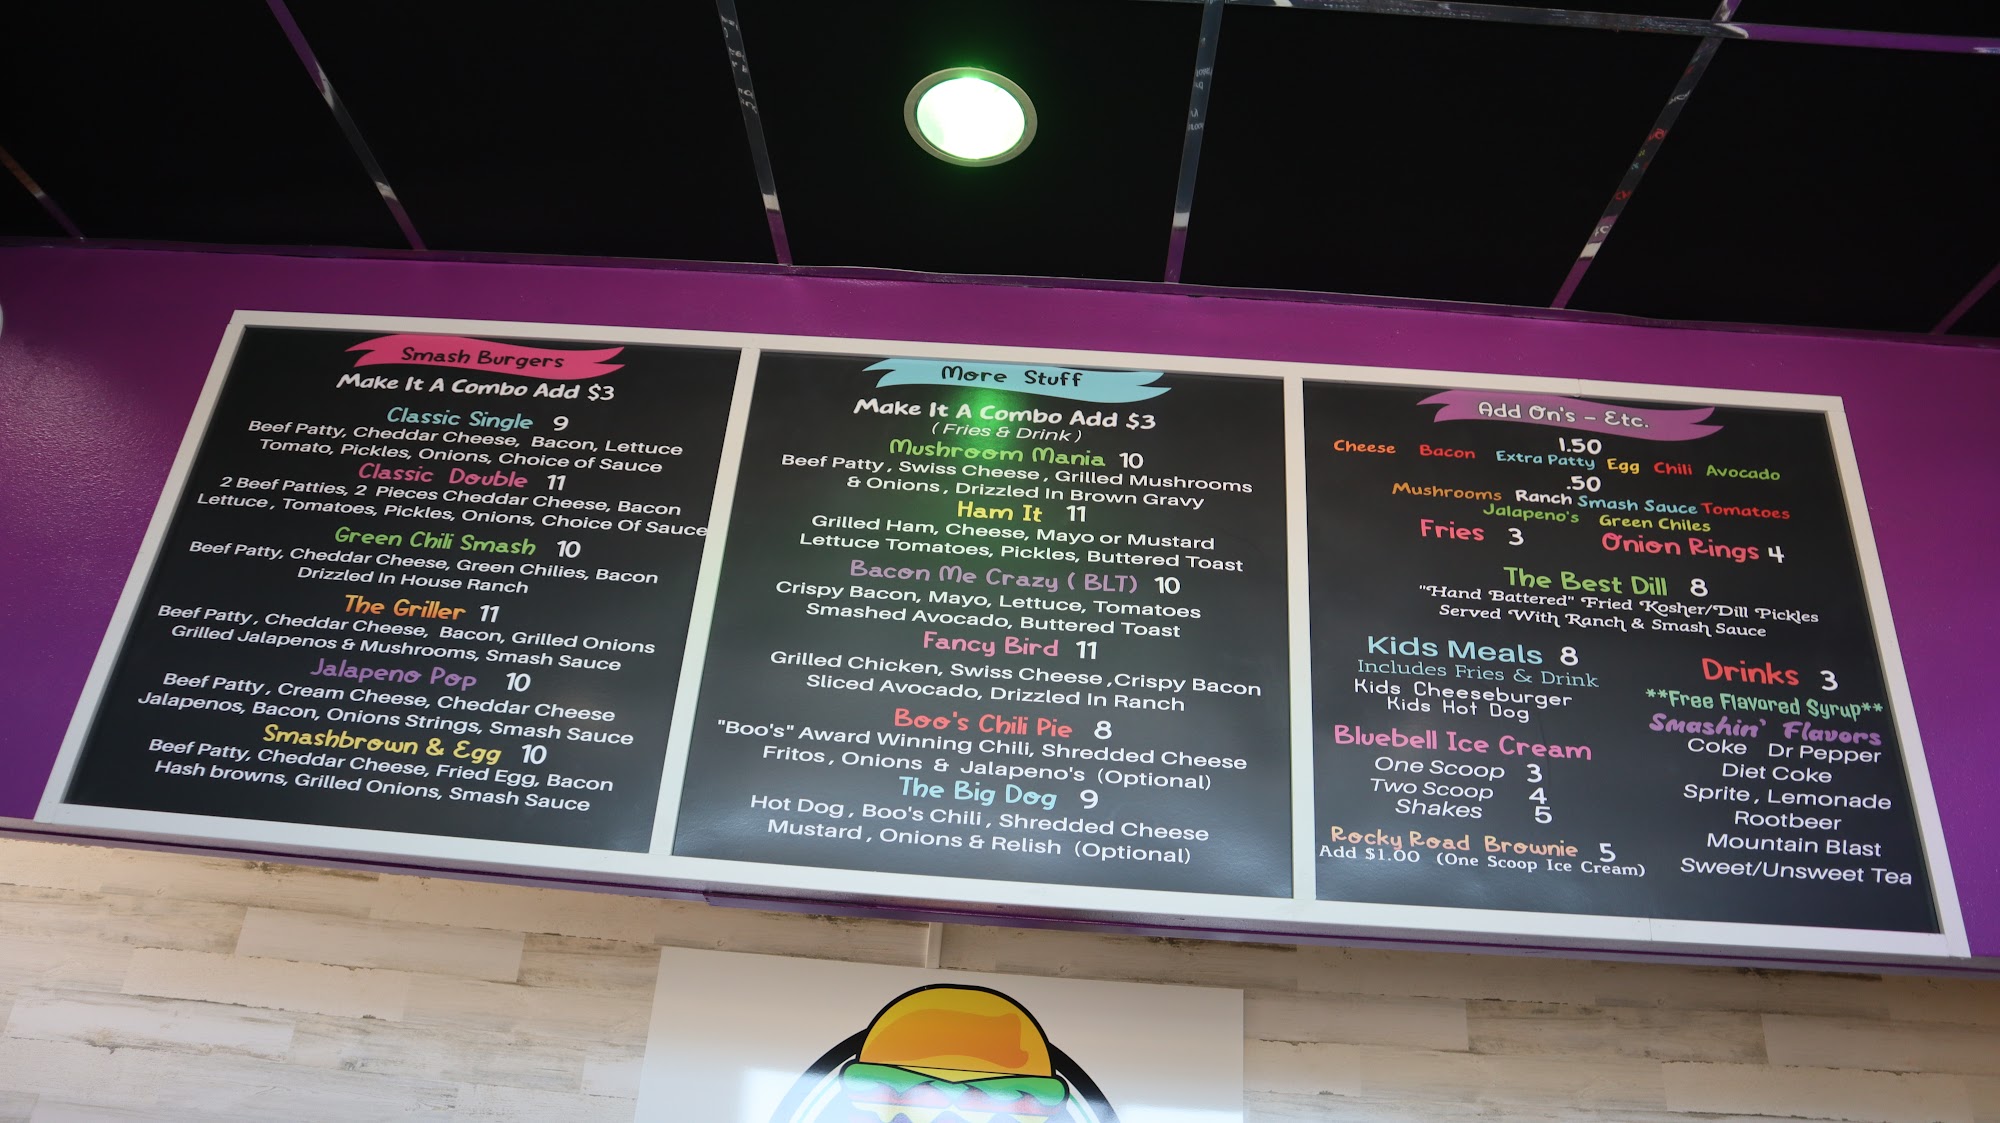 Smash Burgers
Make It A Combo Add $3
Classic Single 9
Beef Patty, Cheddar Cheese, Bacon, Lettuce
Tomato, Pickles, Onions, Choice of Sauce
Classic Double 11
2 Beef Patties, 2 Pieces Cheddar Cheese, Bacon
Lettuce, Tomatoes, Pickles, Onions, Choice Of Sauce
Green Chili Smash 10
Beef Patty, Cheddar Cheese, Green Chilies, Bacon
Drizzled In House Ranch
The Griller 11
Beef Patty, Cheddar Cheese, Bacon, Grilled Onions
Grilled Jalapenos & Mushrooms, Smash Sauce
Jalapeno Pop 10
Beef Patty, Cream Cheese, Cheddar Cheese
Jalapenos, Bacon, Onions Strings, Smash Sauce
Smashbrown & Egg 10
Beef Patty, Cheddar Cheese, Fried Egg, Bacon
Hash browns, Grilled Onions, Smash Sauce
More Stuff
Make It A Combo Add $3
(Fries & Drink)
Mushroom Mania 10
Beef Patty, Swiss Cheese, Grilled Mushrooms
& Onions, Drizzled In Brown Gravy
Ham It 11
Grilled Ham, Cheese, Mayo or Mustard
Lettuce Tomatoes, Pickles, Buttered Toast
Bacon Me Crazy (BLT) 10
Crispy Bacon, Mayo, Lettuce, Tomatoes
Smashed Avocado, Buttered Toast
Fancy Bird 11
Grilled Chicken, Swiss Cheese, Crispy Bacon
Sliced Avocado, Drizzled In Ranch
Boo's Chili Pie 8
"Boo's" Award Winning Chili, Shredded Cheese
Fritos, Onions & Jalapeno's (Optional)
The Big Dog 9
Hot Dog, Boo's Chili, Shredded Cheese
Mustard, Onions & Relish (Optional)
Add On's - Etc.
1.50
Cheese Bacon Extra Patty Egg Chili Avocado
.50
Mushrooms Ranch Smash Sauce Tomatoes
Jalapeno's Green Chiles
Fries 3 Onion Rings 4
The Best Dill 8
"Hand Battered" Fried Kosher/Dill Pickles
Served With Ranch & Smash Sauce
Kids Meals 8
Includes Fries & Drink
Kids Cheeseburger
Kids Hot Dog
Bluebell Ice Cream
One Scoop 3
Two Scoop 4
Shakes 5
Rocky Road Brownie 5
Add $1.00 (One Scoop Ice Cream)
Drinks 3
**Free Flavored Syrup**
Smashin' Flavors
Coke Dr Pepper
Diet Coke
Sprite, Lemonade
Rootbeer
Mountain Blast
Sweet/Unsweet Tea